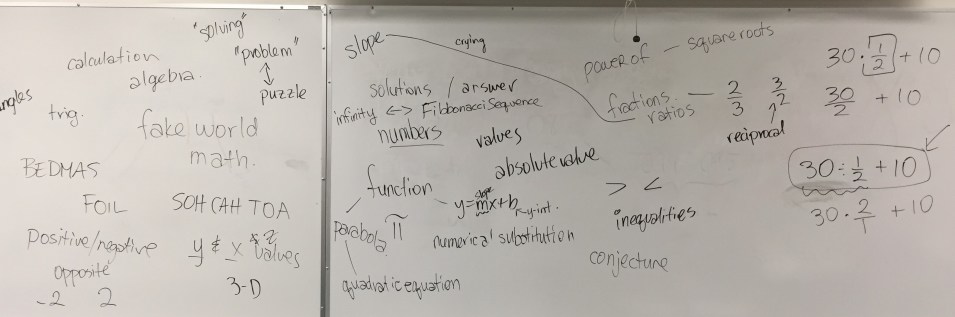 "solving"
calculation
"problem"
algebra.
↕
puzzle
ngles
trig.
fake world
math.
BEDMAS
FOIL
SOH CAH TOA
Positive/negative
y & x & z
values
opposite
3-D
-2 2
slope
crying
solutions / answer
infinity <-> Fibbonacci Sequence
numbers
values
absolute value
function
slope
y=mx+b
y-int.
Parabola
π
numerical substitution
quadratic equation
power of — square roots
fractions — 2/3 3/2
ratios
reciprocal
> <
inequalities
conjecture
30 · 1/2 + 10
30/2 + 10
30 ÷ 1/2 + 10
30 · 2/1 + 10